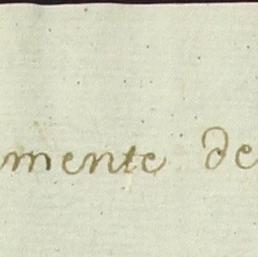 mente de